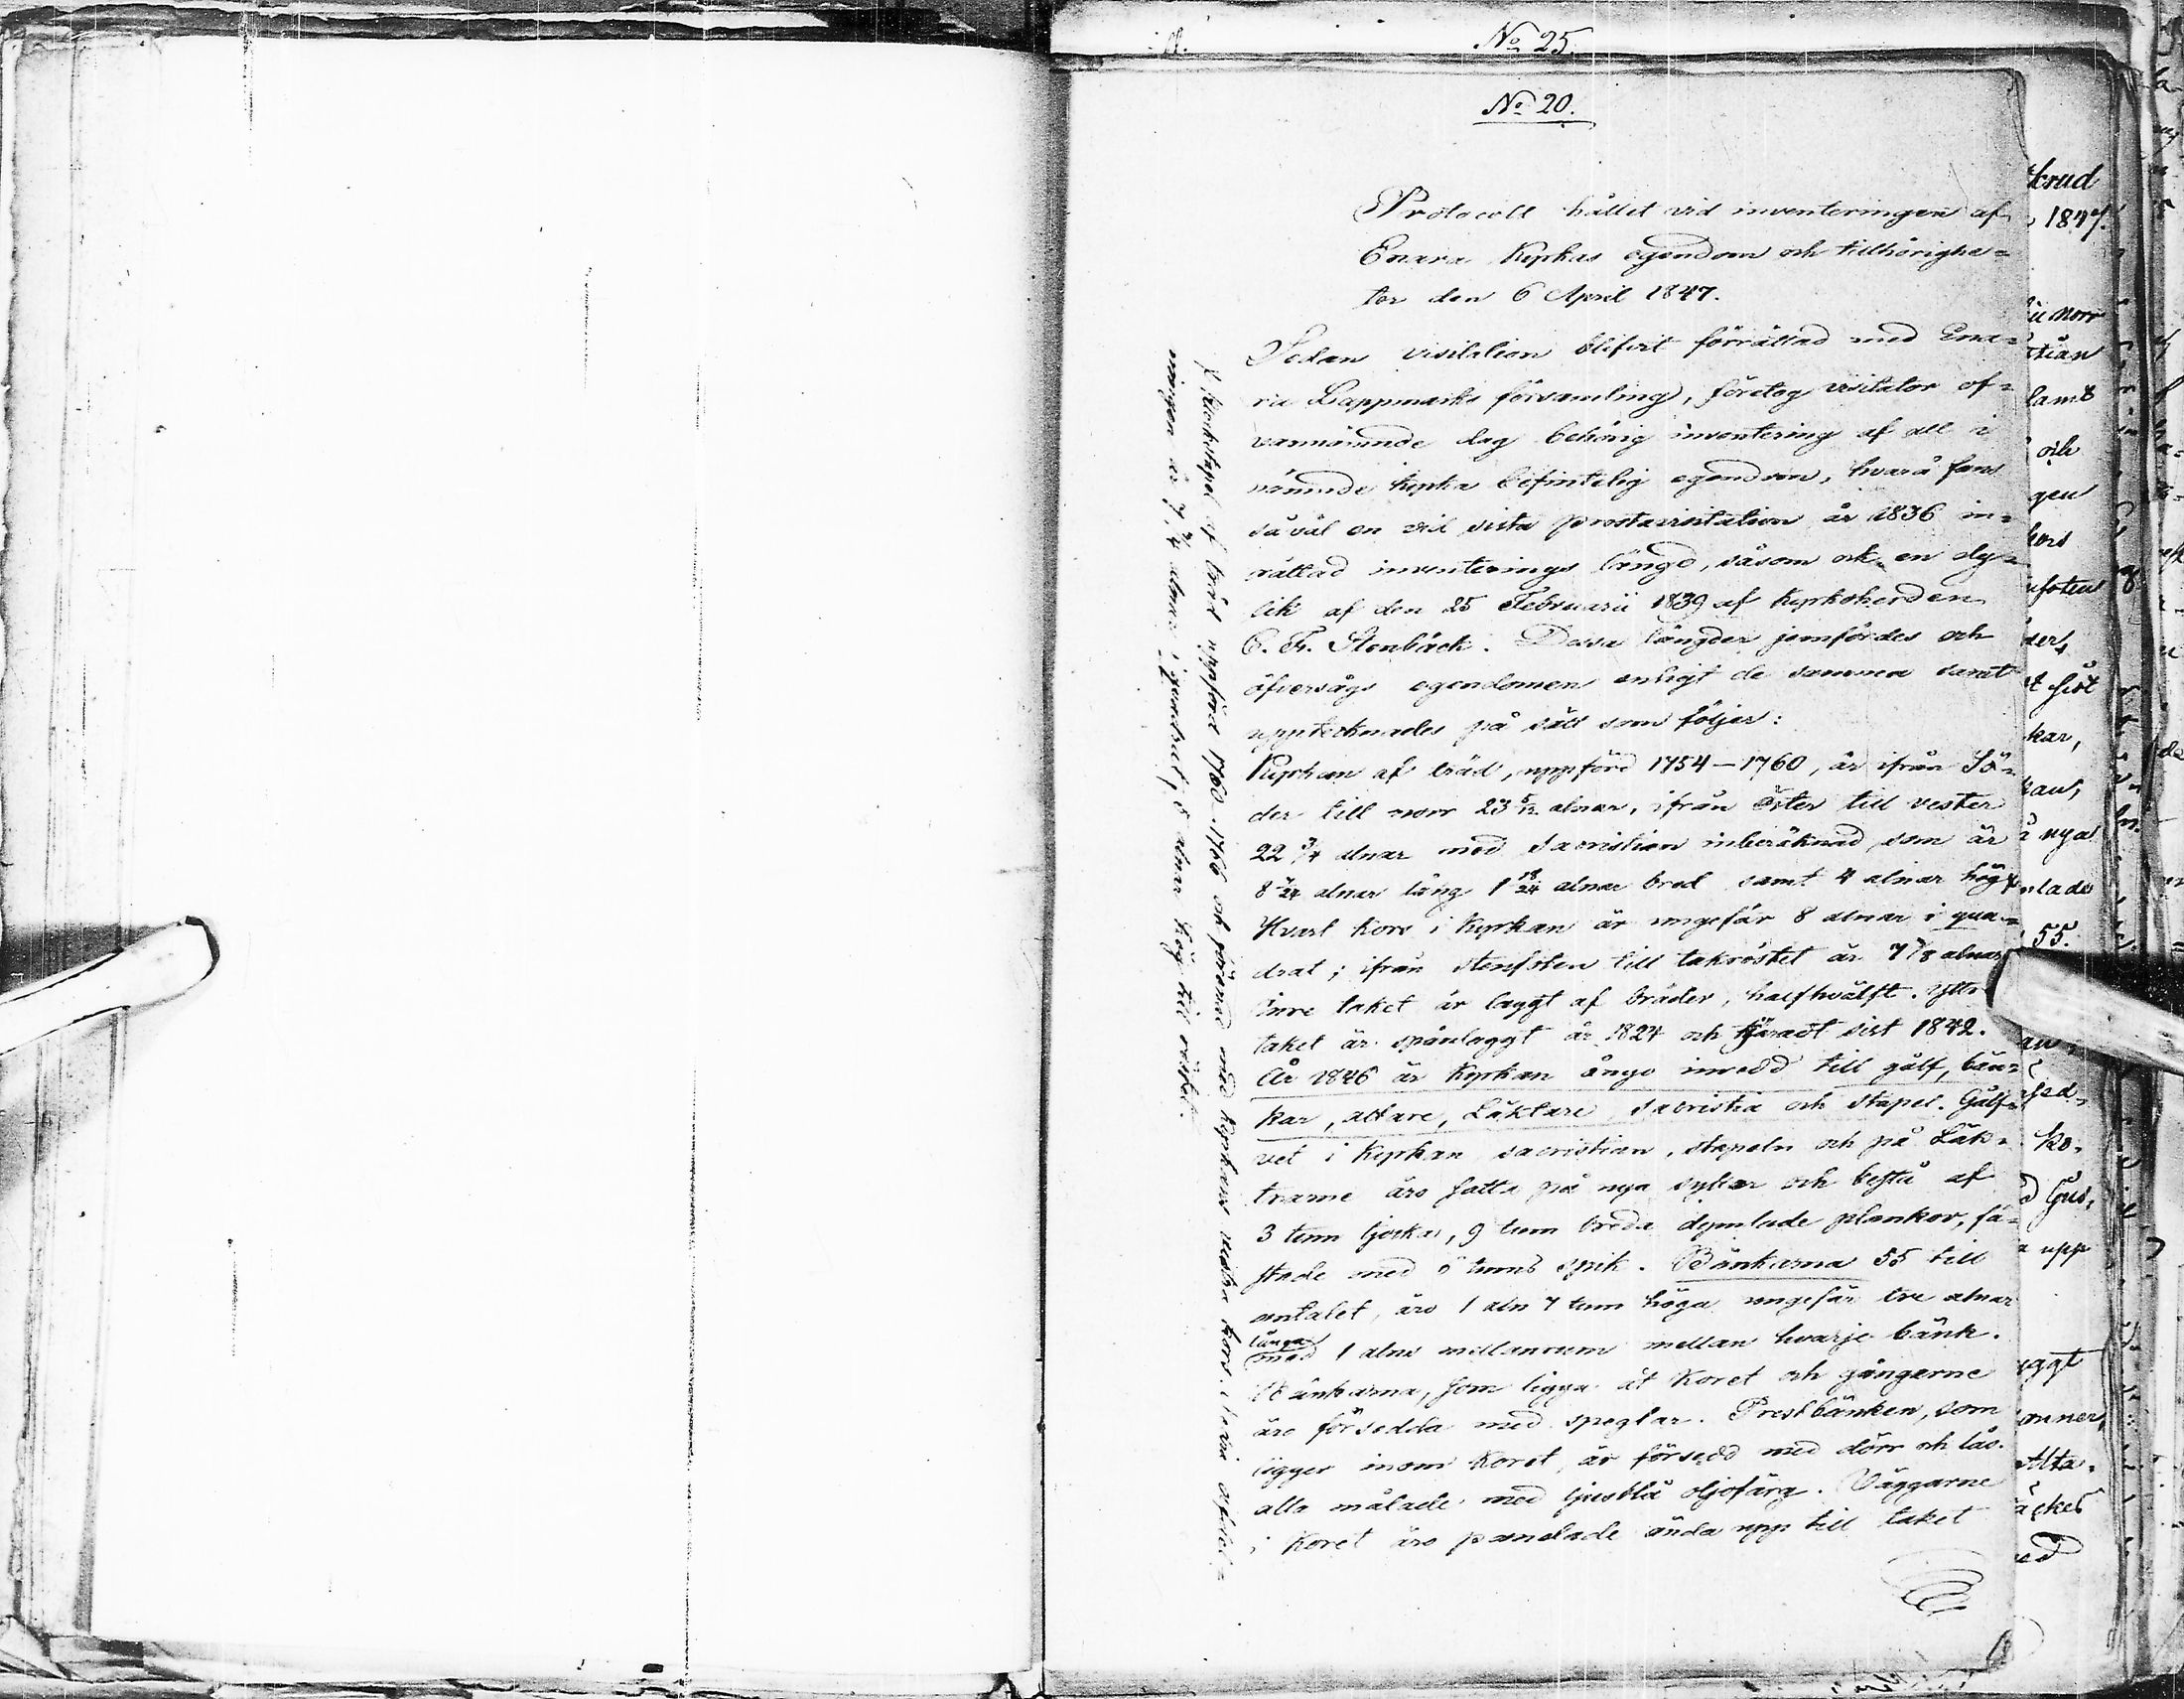 No 25.
No 20.
Protocoll hållit vid inventeringen af
Enara Kyrkas egendom och tillhörighe=
ter den 6 April 1847.
Sedan visitation blifvit förrättad med Ena=
ra Lappmarks församling, företog visitator of=
vannämnde dag behörig inventering af all i
nämnde kyrka befintelig egendom, hvarå fans
såväl en vid sista prostavisitation år 1836 in=
rättad inventerings längd, såsom ock en dy=
lik af den 25 Februarii 1839 af kyrkoherden
E. Fr. Stenbäck. Dessa längder jemfördes och
öfversågs egendomen enligt de samma samt
upptecknades på sätt som följer:
Kyrkan af träd, uppförd 1754 — 1760, är ifrån Sö=
der till norr 23 5/12 alnar, ifrån öster till vester
22 3/4 alnar med sacristian inberäknad, som är
8 alnar lång 1 18/24 alnar bred samt 4 alnar hög
Hvart kors i Kyrkan är ungefär 8 alnar i qua=
drat; ifrån stenfoten till takröstet är 7 7/8 alnar
Inre taket är laggt af bräder, halfhvälft. Yttr
taket är spånlaggt år 1824 och tjäradt sist 1842.
År 1846 är Kyrkan ånyo inredd till gålf, bän=
kar, altare, Läktare, sacristia och stapel. Gålf=
vet i Kyrkan sacristian, stapeln och på Läk=
trarne äro satta på nya syllar och bestå af
3 tum tjocka, 9 tum breda dymlade plankor, fä=
stade med 6 tums spik. Bänkarna 55 till
antalet, äro 1 aln 7 tum höga ungefär tre alnar
långa
med 1 alns mellanrum mellan hvarje bänk.
Bänkarna, som ligga åt Koret och gångarne
äro försedda med speglar. Prestbänken, som
ligger inom Koret, är försedd med dörr och lås.
alla målade med ljusblå oljofärg. Väggarne
i Koret äro panelade ända upp till taket
Klockstapel af träd uppförd 1760–1766 och förenad med kyrkans vestra kors i tvenne afdel=
ningar är 7 3/4 alnar i quadrat, 8 alnar hög till röstet.
krud
1847.
norr
stian
lamt
och
gen
kors
nfoten
kar,
nya
nlade
55.
ko=
Gus,
upp
yggt
onner,
Alta=